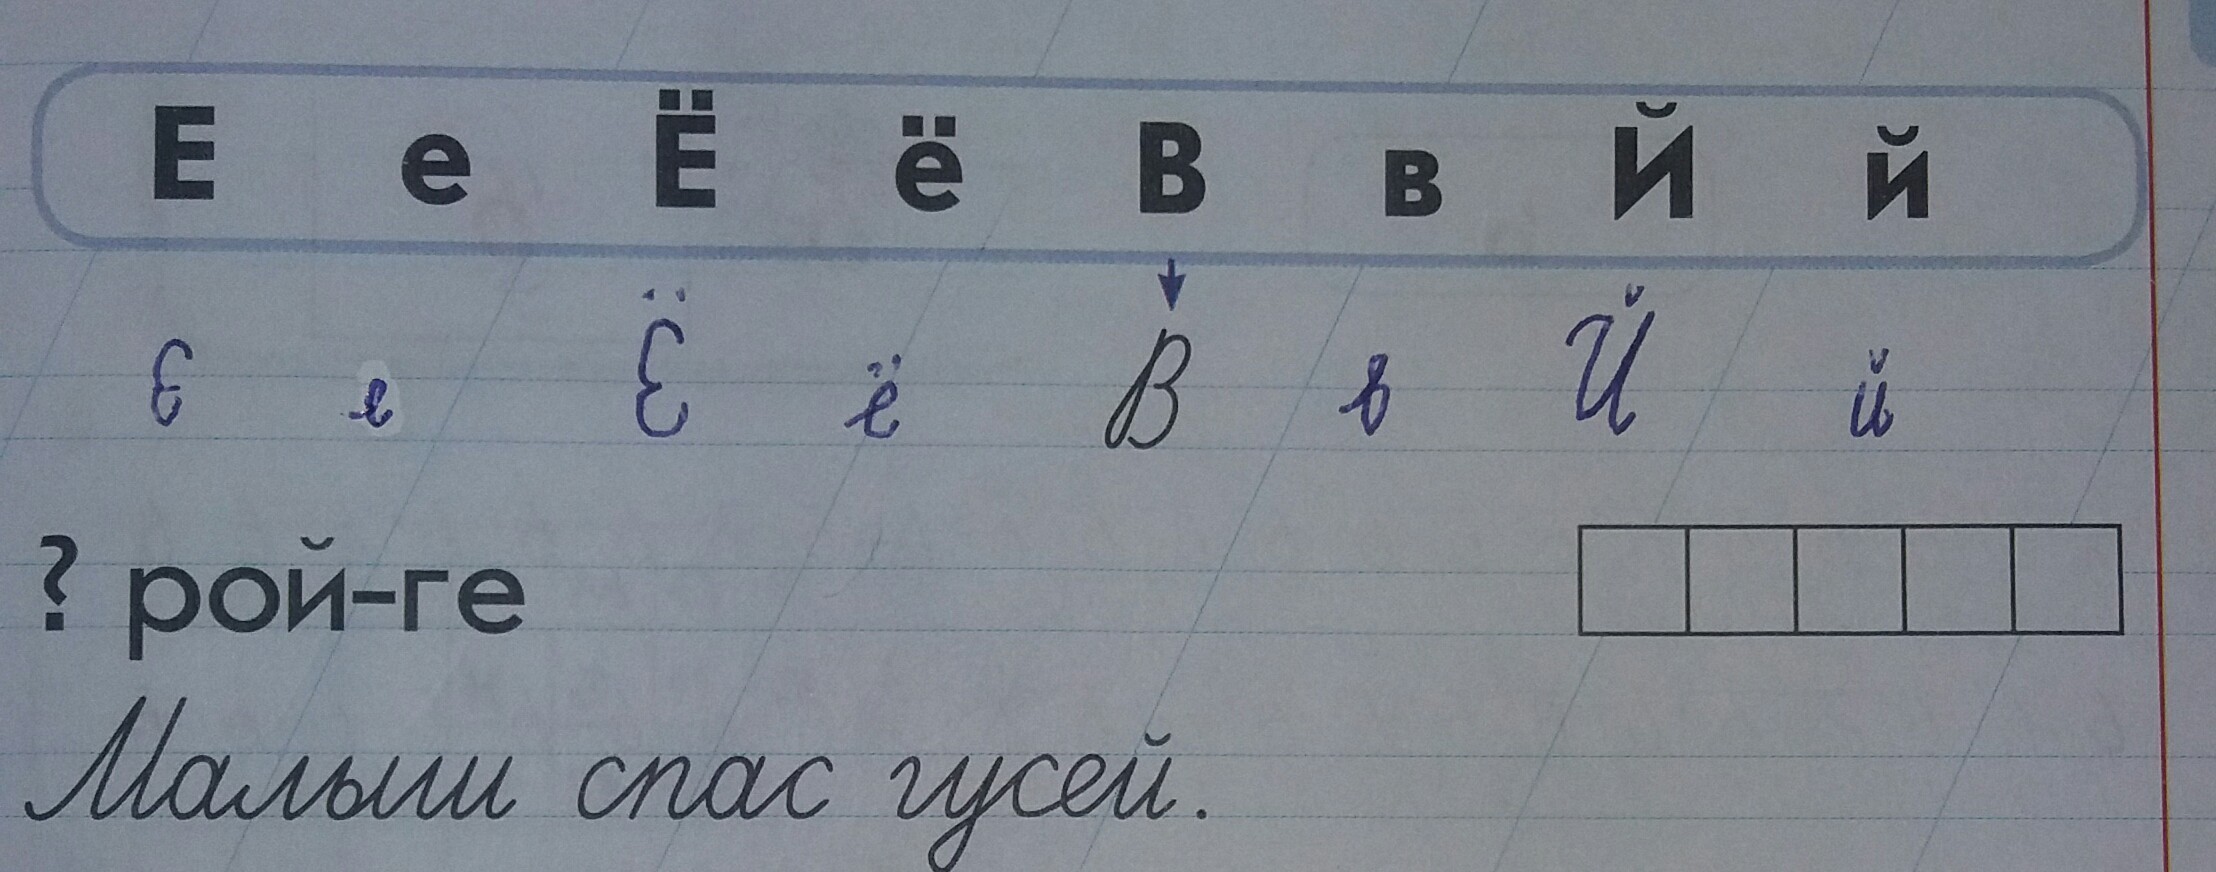 Е е Ё ё В в Й й
Е е Ё ё В в Й й
? рой-ге
Малыш спас гусей.